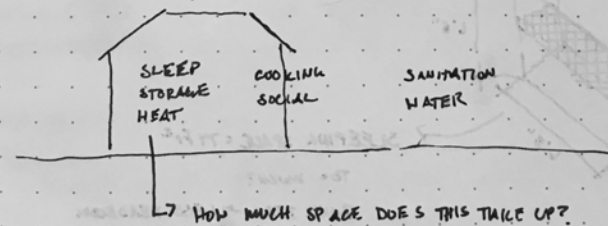 SLEEP
STORAGE
HEAT
COOKING
SOCIAL
SANITATION
WATER
HOW MUCH SPACE DOES THIS TAKE UP?